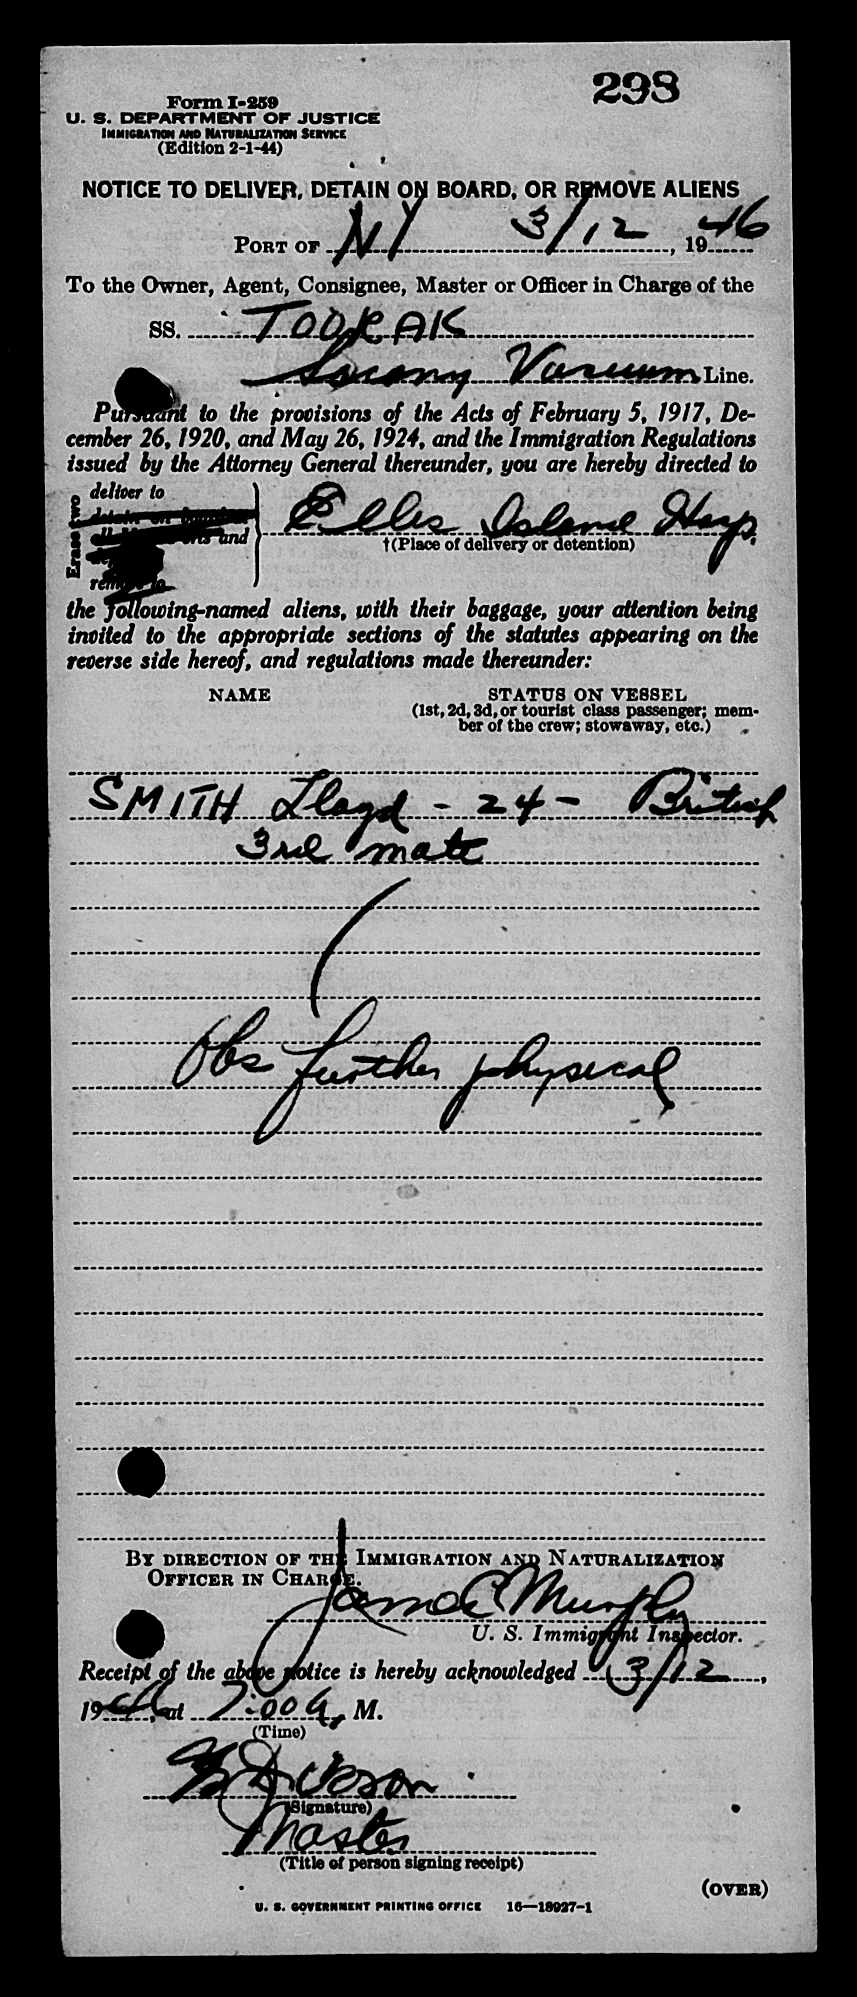 298
Form I-259
U. S. DEPARTMENT OF JUSTICE
IMMIGRATION AND NATURALIZATION SERVICE
(Edition 2-1-44)
NOTICE TO DELIVER, DETAIN ON BOARD, OR REMOVE ALIENS
PORT OF NY 3/12, 1946
To the Owner, Agent, Consignee, Master or Officer in Charge of the
SS. TOORAK
Socony Vacuum Line.
Pursuant to the provisions of the Acts of February 5, 1917, De-
cember 26, 1920, and May 26, 1924, and the Immigration Regulations
issued by the Attorney General thereunder, you are hereby directed to
Erase two
deliver to
detain on board
and
remove to
Ellis Island Hosp.
†(Place of delivery or detention)
the following-named aliens, with their baggage, your attention being
invited to the appropriate sections of the statutes appearing on the
reverse side hereof, and regulations made thereunder:
NAME STATUS ON VESSEL
(1st, 2d, 3d, or tourist class passenger; mem-
ber of the crew; stowaway, etc.)
SMITH Lloyd - 24 - British
3rd mate
Obs further physical
BY DIRECTION OF THE IMMIGRATION AND NATURALIZATION
OFFICER IN CHARGE.
James C Murphy
U. S. Immigrant Inspector.
Receipt of the above notice is hereby acknowledged 3/12,
1946, at 7:00 A. M.
(Time)
Dickson
(Signature)
Master
(Title of person signing receipt)
(OVER)
U. S. GOVERNMENT PRINTING OFFICE 16—18927-1